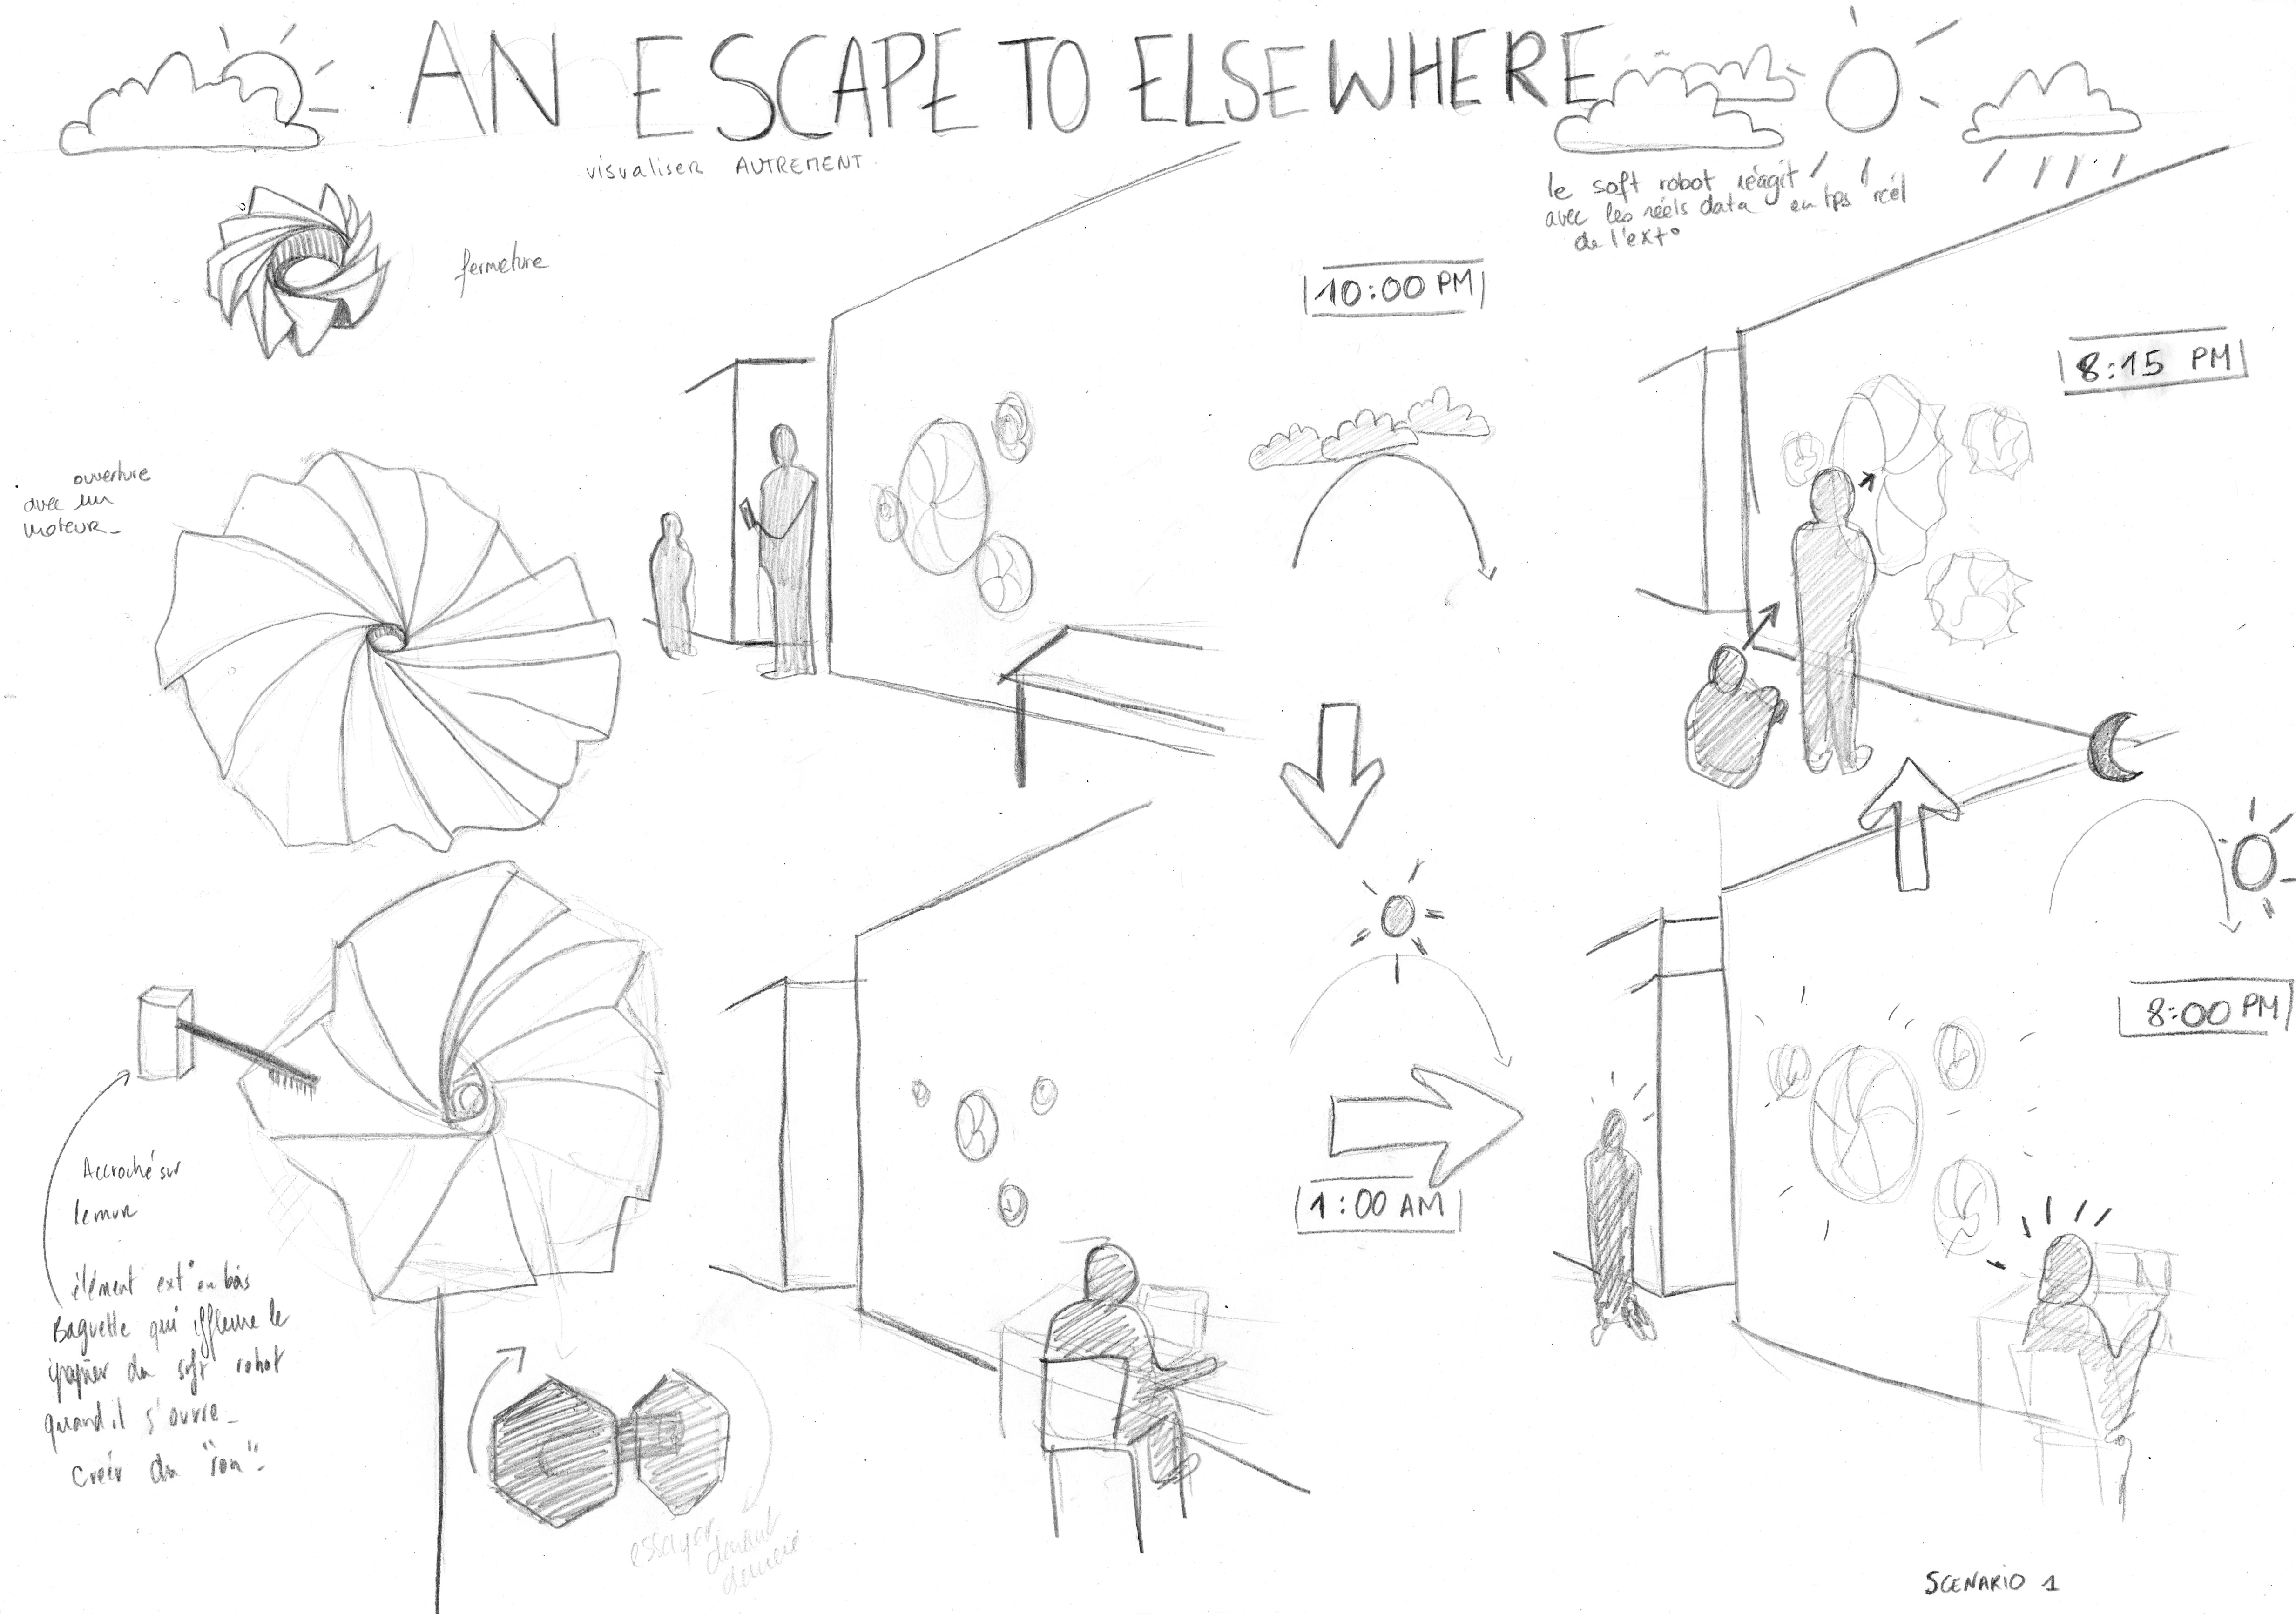 AN ESCAPE TO ELSEWHERE
visualiser AUTREMENT
le soft robot réagit
avec les réels data en tps réel
de l'ext°
fermeture
10:00 PM
8:15 PM
ouverture
avec un
moteur_
8:00 PM
1:00 AM
Accroché sur
le mur
élément ext° en bas
Baguette qui effleure le
papier du soft robot
quand il s'ouvre_
créer du "son"_
essayer
devant
derrière
SCENARIO 1